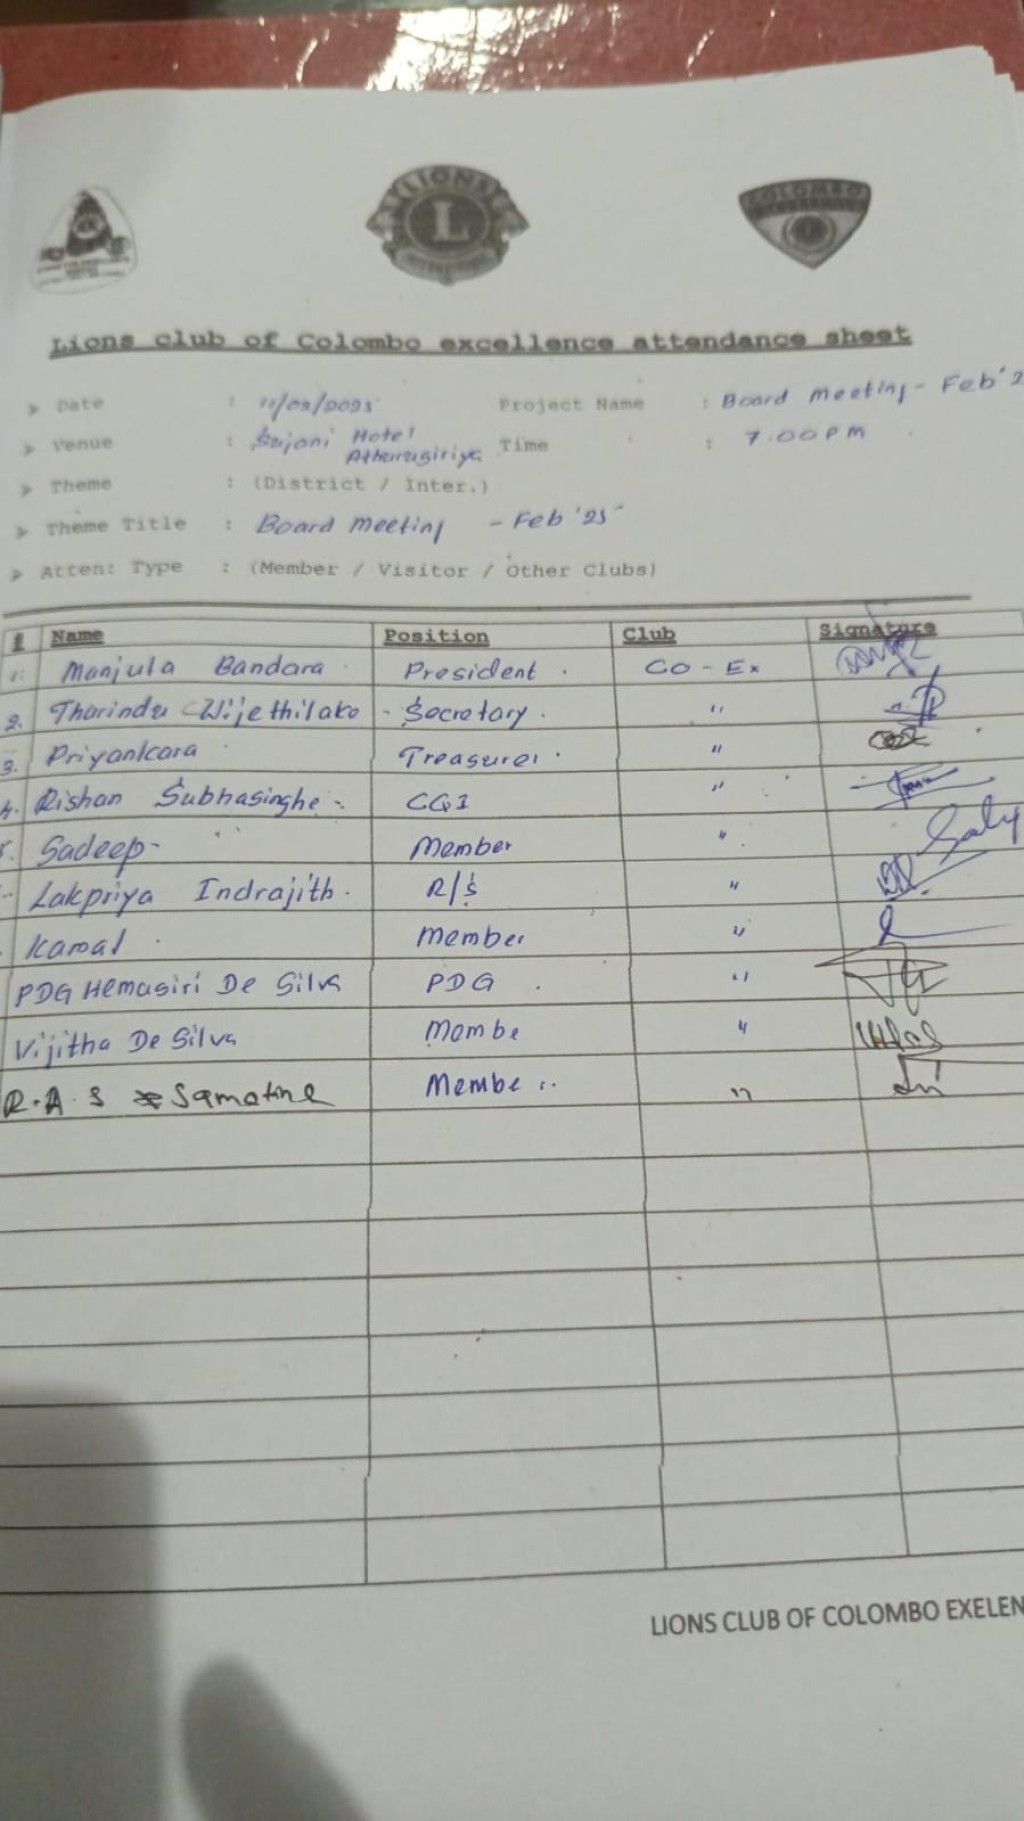 LIONS
L
INTERNATIONAL
COLOMBO
Lions club of Colombo excellence attendance sheet
➤ Date : 11/02/2025 Project Name : Board meeting - Feb '2
➤ Venue : Sajani Hotel Athurugiriya Time : 7.00PM
➤ Theme : (District / Inter.)
➤ Theme Title : Board meeting - Feb '25
➤ Atten: Type : (Member / Visitor / Other Clubs)
# Name Position Club Signature
1. Manjula Bandara President. CO - Ex
2. Tharindu Wijethilake - Secretary. "
3. Priyankara Treasurer. "
4. Rishan Subhasinghe - "
5. Sadeep - Member "
Lakpriya Indrajith. R/S "
Kamal. Member "
PDG Hemasiri De Silva PDG. "
Vijitha De Silva Membe "
R.A.S Member. "
LIONS CLUB OF COLOMBO EXELEN